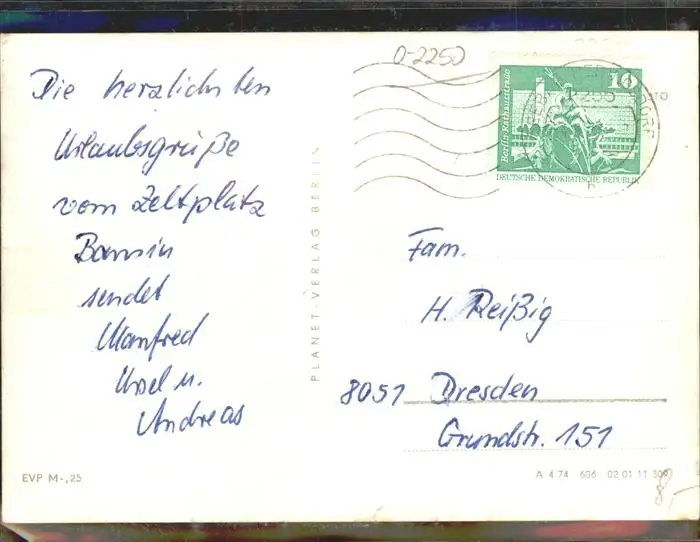 Die herzlichsten
Urlaubsgrüße
vom Zeltplatz
Bansin
sendet
Manfred
Ursel u.
Andreas
EVP M-,25
PLANET VERLAG BERLIN
0-2250
10
Berlin-Rathausstraße
DEUTSCHE DEMOKRATISCHE REPUBLIK
Fam.
H. Reißig
8051 Dresden
Grundstr. 151
A 4 74 606 02 01 11 309
8,-